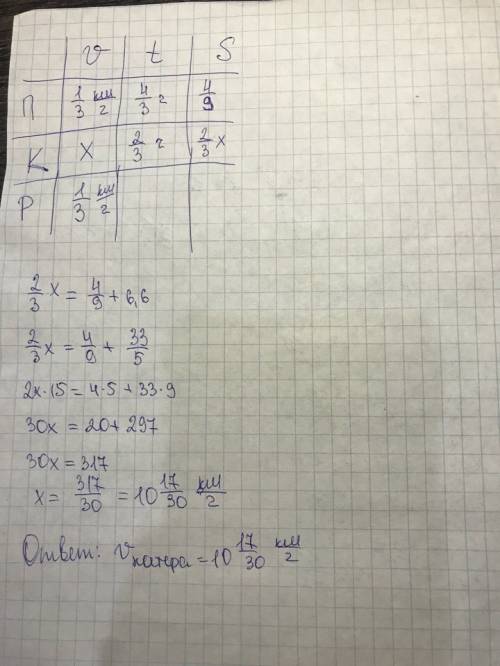 v t S
П 1/3 км/г 4/3 г 4/9
К x 2/3 г 2/3 x
Р 1/3 км/г
2/3 x = 4/9 + 6,6
2/3 x = 4/9 + 33/5
2x·15 = 4·5 + 33·9
30x = 20 + 297
30x = 317
x = 317/30 = 10 17/30 км/г
Ответ: v катера = 10 17/30 км/г